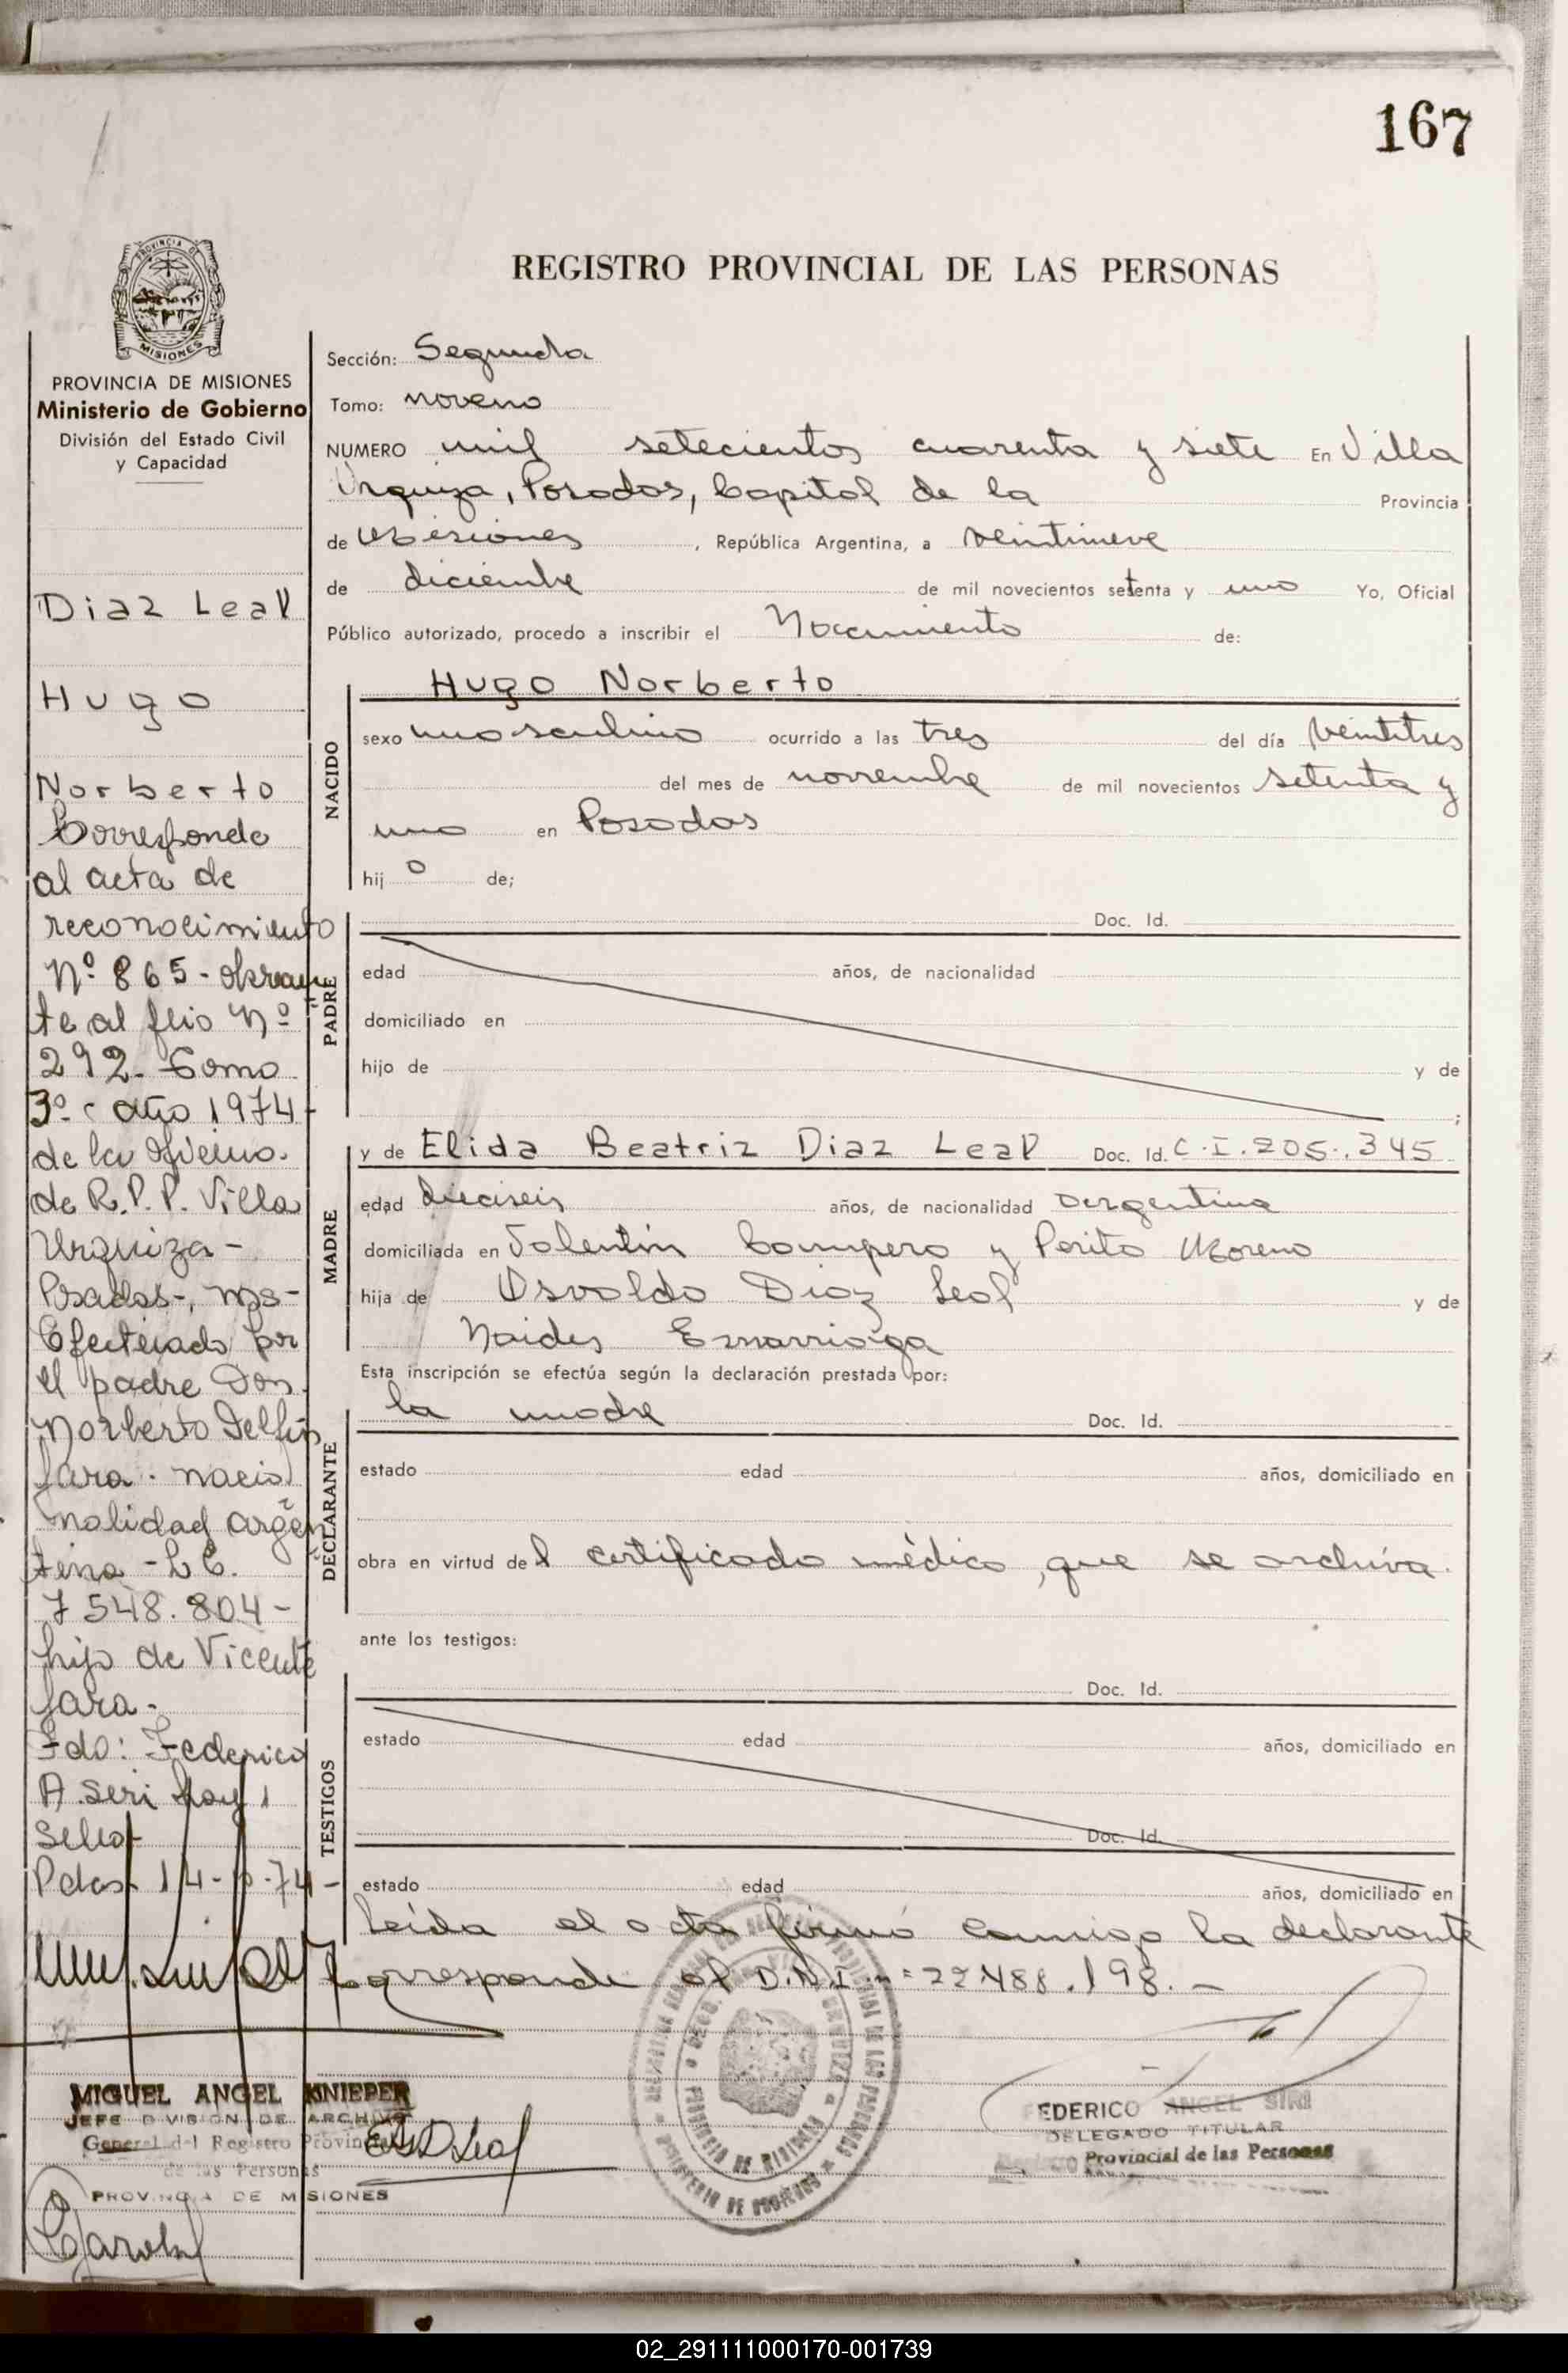 167
REGISTRO PROVINCIAL DE LAS PERSONAS
PROVINCIA DE MISIONES
Ministerio de Gobierno
División del Estado Civil
y Capacidad
Diaz Leal
Hugo
Norberto
Corresponde
al acta de
reconocimiento
Nº 865 - obran
te al flio Nº
292 - Tomo
3º - año 1974 -
de la Oficina
de R.P.P. Villa
Urquiza -
Posadas -, Mns -
Efectuado por
el padre Don
Norberto Delfin
Jara - nacio
nalidad argen
tina - L E.
7 548.804 -
hijo de Vicente
Jara -
Fdo: Federico
A. Siri hay 1
Sello -
Pdas 14- -74 -
Sección: Segunda
Tomo: noveno
NUMERO mil setecientos cuarenta y siete En Villa
Urquiza, Posadas, Capital de la Provincia
de Misiones , República Argentina, a veintinueve
de diciembre de mil novecientos setenta y uno Yo, Oficial
Público autorizado, procedo a inscribir el Nacimiento de:
NACIDO
Hugo Norberto
sexo masculino ocurrido a las tres del día veintitres
del mes de noviembre de mil novecientos setenta y
uno en Posadas
hijo de;
PADRE
Doc. Id.
edad años, de nacionalidad
domiciliado en
hijo de y de
;
MADRE
y de Elida Beatriz Diaz Leal Doc. Id. C.I. 205.345
edad dieciseis años, de nacionalidad argentina
domiciliada en Valentin Campero y Perito Moreno
hija de Osvaldo Diaz Leal y de
Naides
Esta inscripción se efectúa según la declaración prestada por:
DECLARANTE
la madre Doc. Id.
estado edad años, domiciliado en
obra en virtud del certificado médico, que se archiva.
ante los testigos:
TESTIGOS
Doc. Id.
estado edad años, domiciliado en
Doc. Id.
estado edad años, domiciliado en
Leída el acta firmó conmigo la declarante
Corresponde al D.N.I. nº 22.488.198. -
MIGUEL ANGEL KNIEPER
JEFE DIVISION DE ARCHIVO
General del Registro Provincial
de las Personas
PROVINCIA DE MISIONES
FEDERICO ANGEL SIRI
DELEGADO TITULAR
Registro Provincial de las Personas
02_291111000170-001739